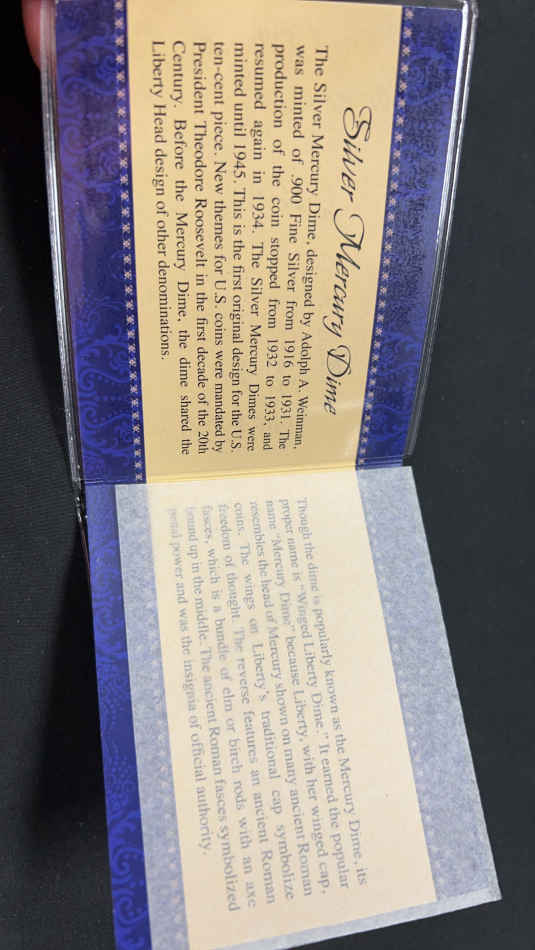 Silver Mercury Dime
The Silver Mercury Dime, designed by Adolph A. Weinman,
was minted of .900 Fine Silver from 1916 to 1931. The
production of the coin stopped from 1932 to 1933, and
resumed again in 1934. The Silver Mercury Dimes were
minted until 1945. This is the first original design for the U.S.
ten-cent piece. New themes for U.S. coins were mandated by
President Theodore Roosevelt in the first decade of the 20th
Century. Before the Mercury Dime, the dime shared the
Liberty Head design of other denominations.
Though the dime is popularly known as the Mercury Dime, its
proper name is "Winged Liberty Dime." It earned the popular
name "Mercury Dime" because Liberty, with her winged cap,
resembles the head of Mercury shown on many ancient Roman
coins. The wings on Liberty's traditional cap symbolize
freedom of thought. The reverse features an ancient Roman
fasces, which is a bundle of elm or birch rods with an axe
bound up in the middle. The ancient Roman fasces symbolized
penal power and was the insignia of official authority.